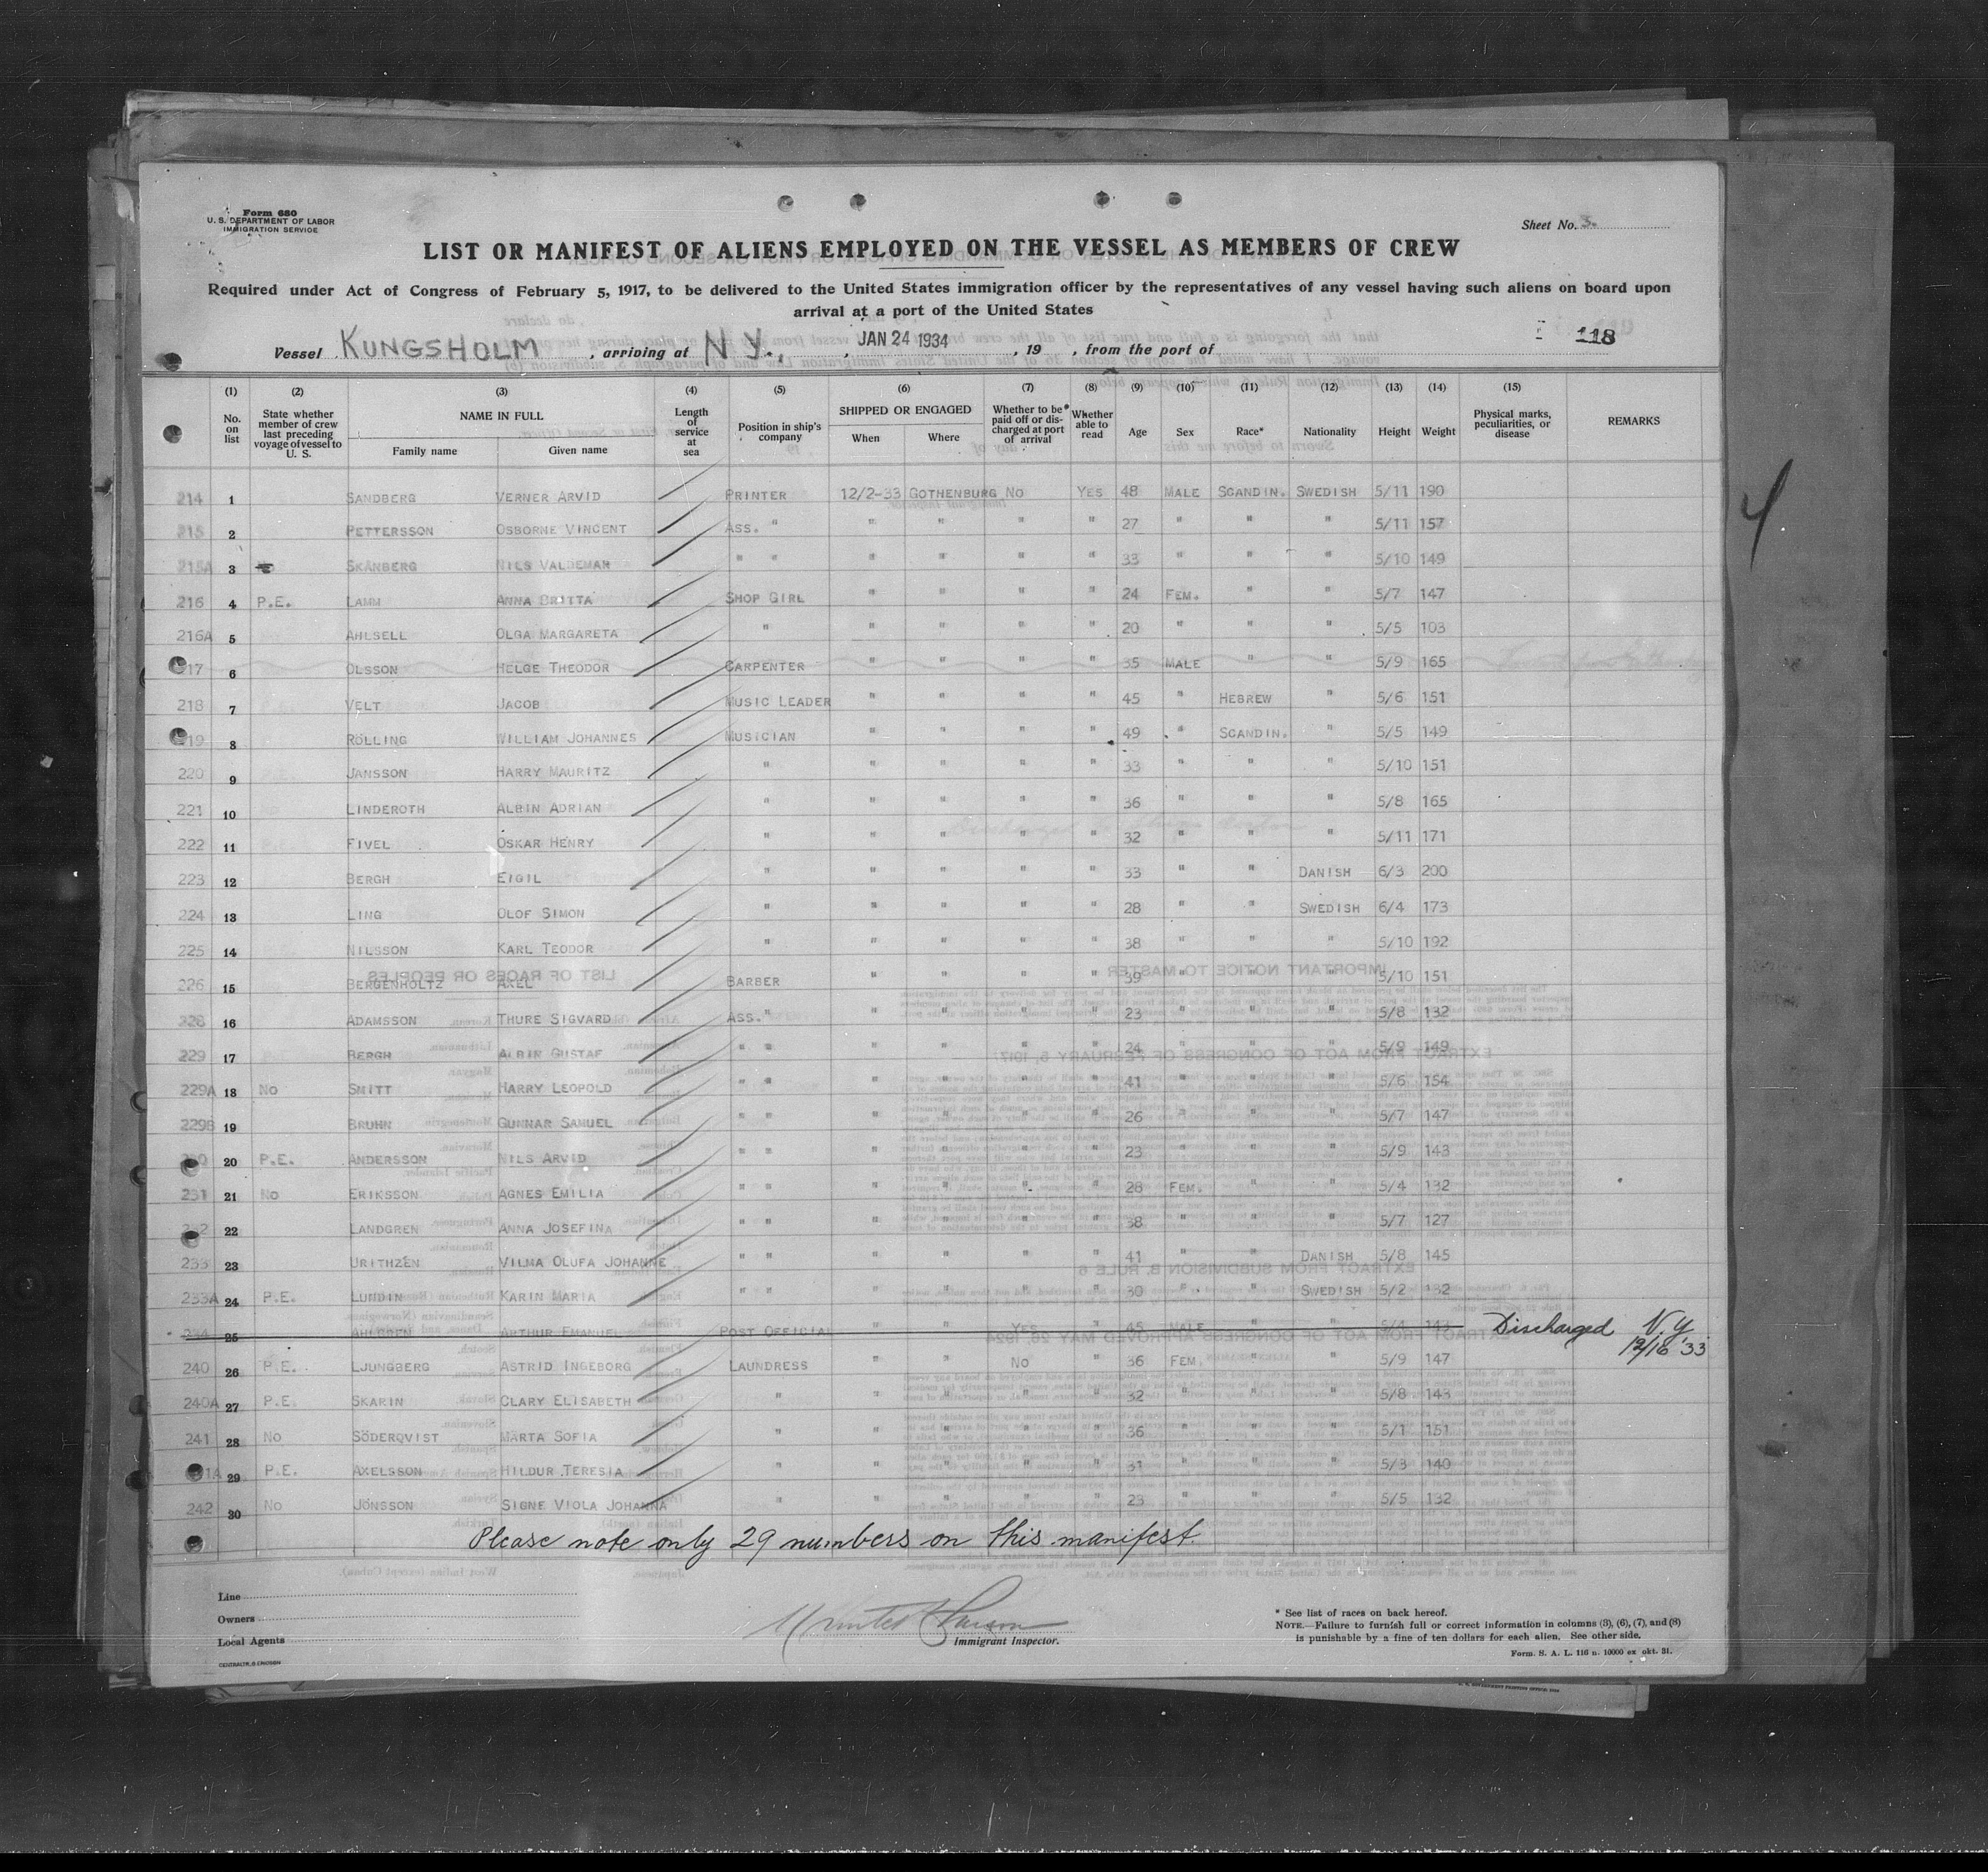 Form 680
U. S. DEPARTMENT OF LABOR
IMMIGRATION SERVICE
Sheet No. 3.
LIST OR MANIFEST OF ALIENS EMPLOYED ON THE VESSEL AS MEMBERS OF CREW
Required under Act of Congress of February 5, 1917, to be delivered to the United States immigration officer by the representatives of any vessel having such aliens on board upon
arrival at a port of the United States
Vessel KUNGSHOLM, arriving at N.Y., JAN 24 1934, 19 , from the port of 118
(1) (2) (3) (4) (5) (6) (7) (8) (9) (10) (11) (12) (13) (14) (15)
No. on list State whether member of crew last preceding voyage of vessel to U. S. NAME IN FULL Family name Given name Length of service at sea Position in ship's company SHIPPED OR ENGAGED When Where Whether to be paid off or discharged at port of arrival Whether able to read Age Sex Race* Nationality Height Weight Physical marks, peculiarities, or disease REMARKS
214 1 SANDBERG VERNER ARVID PRINTER 12/2-33 GOTHENBURG NO YES 48 MALE SCANDIN. SWEDISH 5/11 190
215 2 PETTERSSON OSBORNE VINCENT ASS. " " " " " 27 " " " 5/11 157
215A 3 SKÅNBERG NILS VALDEMAR " " " " " " 33 " " " 5/10 149
216 4 P.E. LAMM ANNA BRITTA SHOP GIRL " " " " 24 FEM. " " 5/7 147
216A 5 AHLSELL OLGA MARGARETA " " " " " 20 " " " 5/5 103
217 6 OLSSON HELGE THEODOR CARPENTER " " " " 35 MALE " " 5/9 165
218 7 VELT JACOB MUSIC LEADER " " " " 45 " HEBREW " 5/6 151
219 8 RÖLLING WILLIAM JOHANNES MUSICIAN " " " " 49 " SCANDIN. " 5/5 149
220 9 JANSSON HARRY MAURITZ " " " " " 33 " " " 5/10 151
221 10 LINDEROTH ALBIN ADRIAN " " " " " 36 " " " 5/8 165
222 11 FIVEL OSKAR HENRY " " " " " 32 " " " 5/11 171
223 12 BERGH EIGIL " " " " " 33 " " DANISH 6/3 200
224 13 LING OLOF SIMON " " " " " 28 " " SWEDISH 6/4 173
225 14 NILSSON KARL TEODOR " " " " " 38 " " " 5/10 192
226 15 BERGENHOLTZ AXEL BARBER " " " " 39 " " " 5/10 151
228 16 ADAMSSON THURE SIGVARD ASS. " " " " " 23 " " " 5/8 132
229 17 BERGH ALBIN GUSTAF " " " " " " 24 " " " 5/9 149
229A 18 NO SMITT HARRY LEOPOLD " " " " " " 41 " " " 5/6 154
229B 19 BRUHN GUNNAR SAMUEL " " " " " " 26 " " " 5/7 147
20 P.E. ANDERSSON NILS ARVID " " " " " " 23 " " " 5/9 143
231 21 NO ERIKSSON AGNES EMILIA " " " " " " 28 FEM. " " 5/4 132
22 LANDGREN ANNA JOSEFINA " " " " " " 38 " " " 5/7 127
233 23 URITHZÉN VILMA OLUFA JOHANNE " " " " " " 41 " " DANISH 5/8 145
233A 24 P.E. LUNDIN KARIN MARIA " " " " " " 30 " " SWEDISH 5/2 132
234 25 AHLGREN ARTHUR EMANUEL POST OFFICIAL " " YES " 45 MALE " " 5/4 143 Discharged N.Y. 12/16 '33
240 26 P.E. LJUNGBERG ASTRID INGEBORG LAUNDRESS " " NO " 36 FEM. " " 5/9 147
240A 27 P.E. SKARIN CLARY ELISABETH " " " " " 32 " " " 5/8 143
241 28 NO SÖDERQVIST MÄRTA SOFIA " " " " " 36 " " " 5/1 151
241A 29 P.E. AXELSSON HILDUR TERESIA " " " " " 31 " " " 5/3 140
242 30 NO JÖNSSON SIGNE VIOLA JOHANNA " " " " " 23 " " " 5/5 132
Please note only 29 numbers on this manifest.
4
Line
Owners
Local Agents
Immigrant Inspector.
* See list of races on back hereof.
NOTE.—Failure to furnish full or correct information in columns (3), (6), (7), and (8)
is punishable by a fine of ten dollars for each alien. See other side.
Form. S. A. L. 116 n. 10000 ex okt. 31.